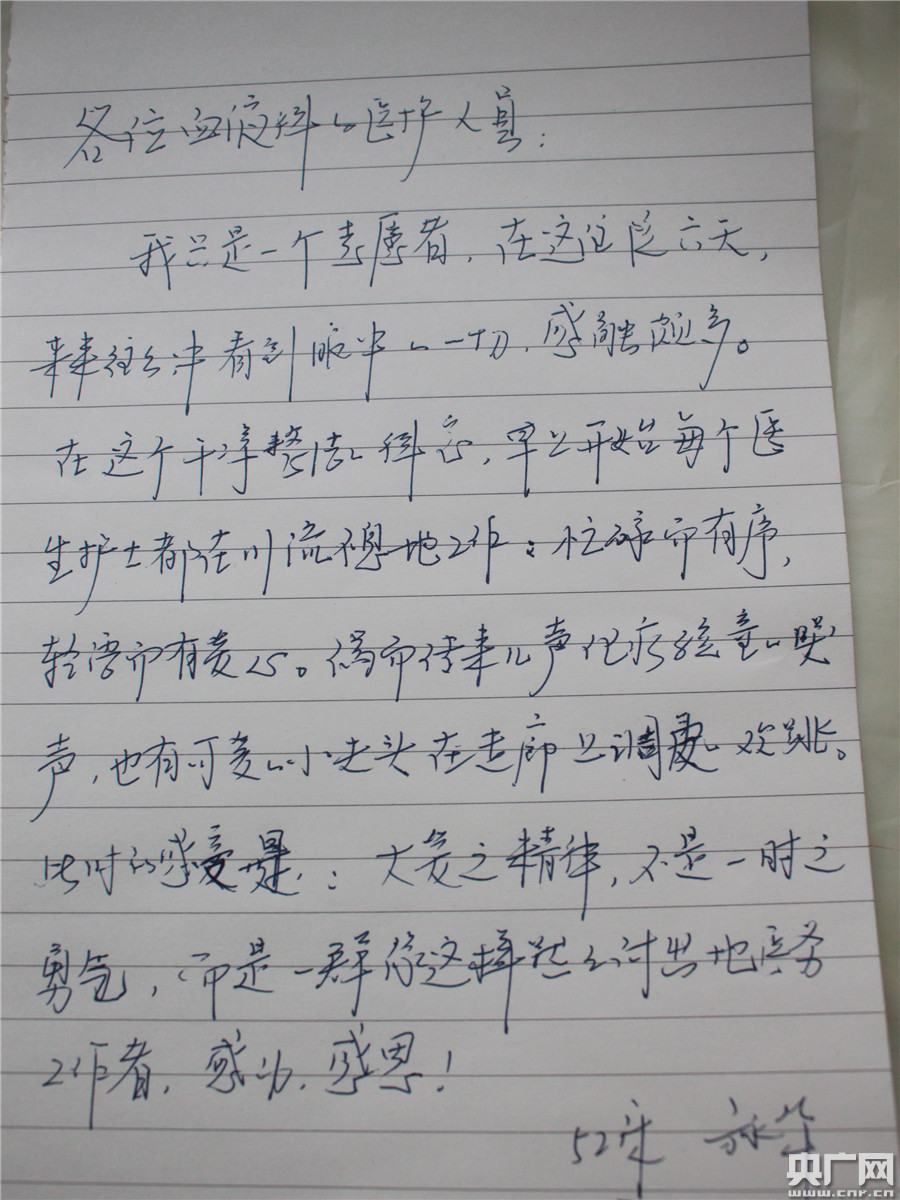 各位血液科的医护人员:
我只是一个志愿者,在这住院六天,
来来往往中看到眼中的一切,感触颇多。
在这个干净整洁的科室,早上开始每个医
生护士都在川流不息地工作:忙碌而有序,
轻语而有爱心。偶而传来几声化疗孩童的哭
声,也有可爱的小光头在走廊上调皮的欢跳。
此时的感受是:大爱之精神,不是一时之
勇气,而是一群像这样默默付出地医务
工作者,感动,感恩!
52床
央广网
www.cnr.cn